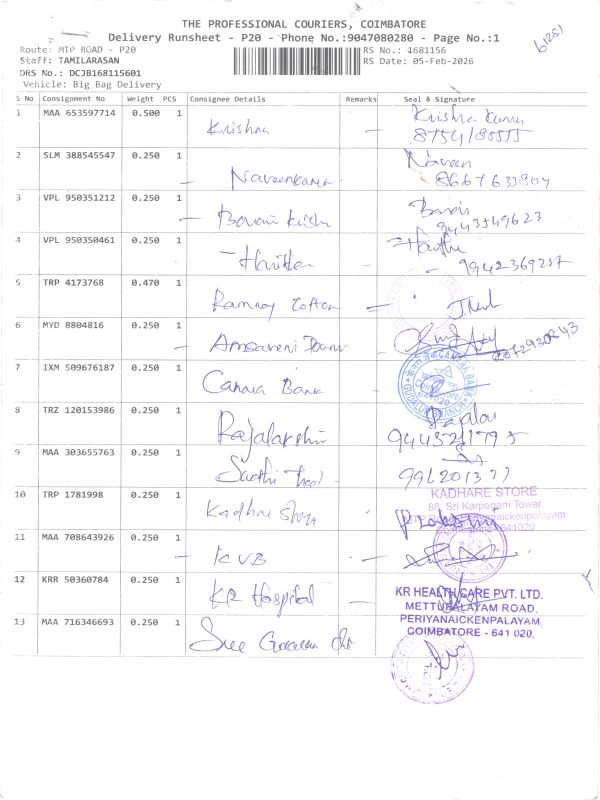 THE PROFESSIONAL COURIERS, COIMBATORE
Delivery Runsheet - P20 - Phone No.:9047080280 - Page No.:1
Route: MTP ROAD - P20
RS No.: 4681156
Staff: TAMILARASAN
RS Date: 05-Feb-2026
DRS No.: DCJB168115601
Vehicle: Big Bag Delivery
S No Consignment No Weight PCS Consignee Details Remarks Seal & Signature
1 MAA 653597714 0.500 1 Krishna Krishna Kumar
2 SLM 388545547 0.250 1 Naveenkumar Naveen
3 VPL 950351212 0.250 1
9443549623
4 VPL 950350461 0.250 1 Haritha Haritha
9942369287
5 TRP 4173768 0.470 1 Ramraj Cotton
6 MYD 8804816 0.250 1 Amsaveni
7 IXM 509676187 0.250 1 Canara Bank
8 TRZ 120153986 0.250 1 Rajalakshmi
9 MAA 303655763 0.250 1 Sakthi
10 TRP 1781998 0.250 1 Kadhare Store
KADHARE STORE
88, Sri Karpagam Tower
11 MAA 708643926 0.250 1 KVB
12 KRR 50360784 0.250 1 KR Hospital
KR HEALTH CARE PVT. LTD.
METTUPALAYAM ROAD,
PERIYANAICKENPALAYAM,
COIMBATORE - 641 020.
13 MAA 716346693 0.250 1 Sree